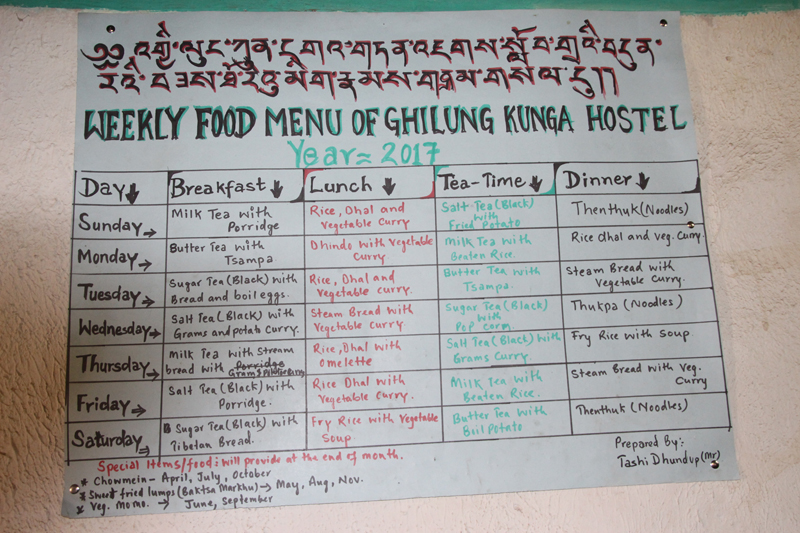 ༄༅ འགྱི་ལུང་ཀུན་དགའ་གདན་འཇགས་སློབ་གྲྭའི་བདུན་
རེའི་བཟས་ཐོ་རེའུ་མིག་རྣམས་གཤམ་གསལ་དུ།།
WEEKLY FOOD MENU OF GHILUNG KUNGA HOSTEL
Year = 2017
Day Breakfast Lunch Tea-Time Dinner
Sunday
Milk Tea with
Porridge
Rice, Dhal and
Vegetable Curry
Salt Tea (Black)
with
Fried Potato
Thenthuk (Noodles)
Monday
Butter Tea with
Tsampa
Dhindo with Vegetable
Curry
Milk Tea with
Beaten Rice.
Rice dhal and veg. Curry.
Tuesday
Sugar Tea (Black) with
Bread and boil eggs.
Rice, Dhal and
Vegetable curry.
Butter Tea with
Tsampa.
Steam Bread with
Vegetable Curry.
Wednesday
Salt Tea (Black) with
Grams and potato Curry.
Steam Bread with
Vegetable curry
Sugar Tea (Black)
with
Pop corn.
Thukpa (Noodles)
Thursday
Milk Tea with Stream
bread with Porridge
Grams
Rice, Dhal with
omelette
Salt Tea (Black) with
Grams Curry.
Fry Rice with Soup.
Friday
Salt Tea (Black) with
Porridge.
Rice Dhal with
Vegetable curry.
Milk tea with
Beaten Rice.
Steam Bread with Veg.
Curry
Saturday
Sugar Tea (Black) with
Tibetan Bread.
Fry Rice with Vegetable
Soup.
Butter Tea with
Boil Potato
Thenthuk (Noodles)
Special Items/food: will provide at the end of month.
* Chowmein - April, July, October
* Sweet fried lumps (Baktsa Markhu) → May, Aug, Nov.
* Veg. Momo. → June, September
Prepared By:-
Tashi Dhundup (Mr)